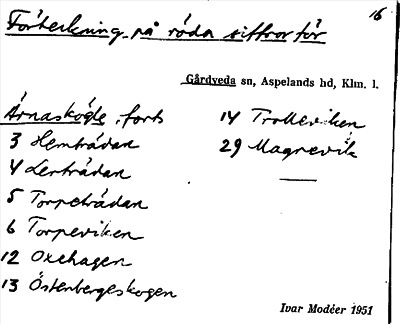 16
Förteckning på röda siffror för
Gårdveda sn, Aspelands hd, Klm. l.
Årnaskögle, forts
3 Hemträdan
4 Lerträdan
5 Torpeträdan
6 Torpeviken
12 Oxehagen
13 Östenbergeskogen
14 Trolleviken
29 Magrevik
Ivar Modéer 1951